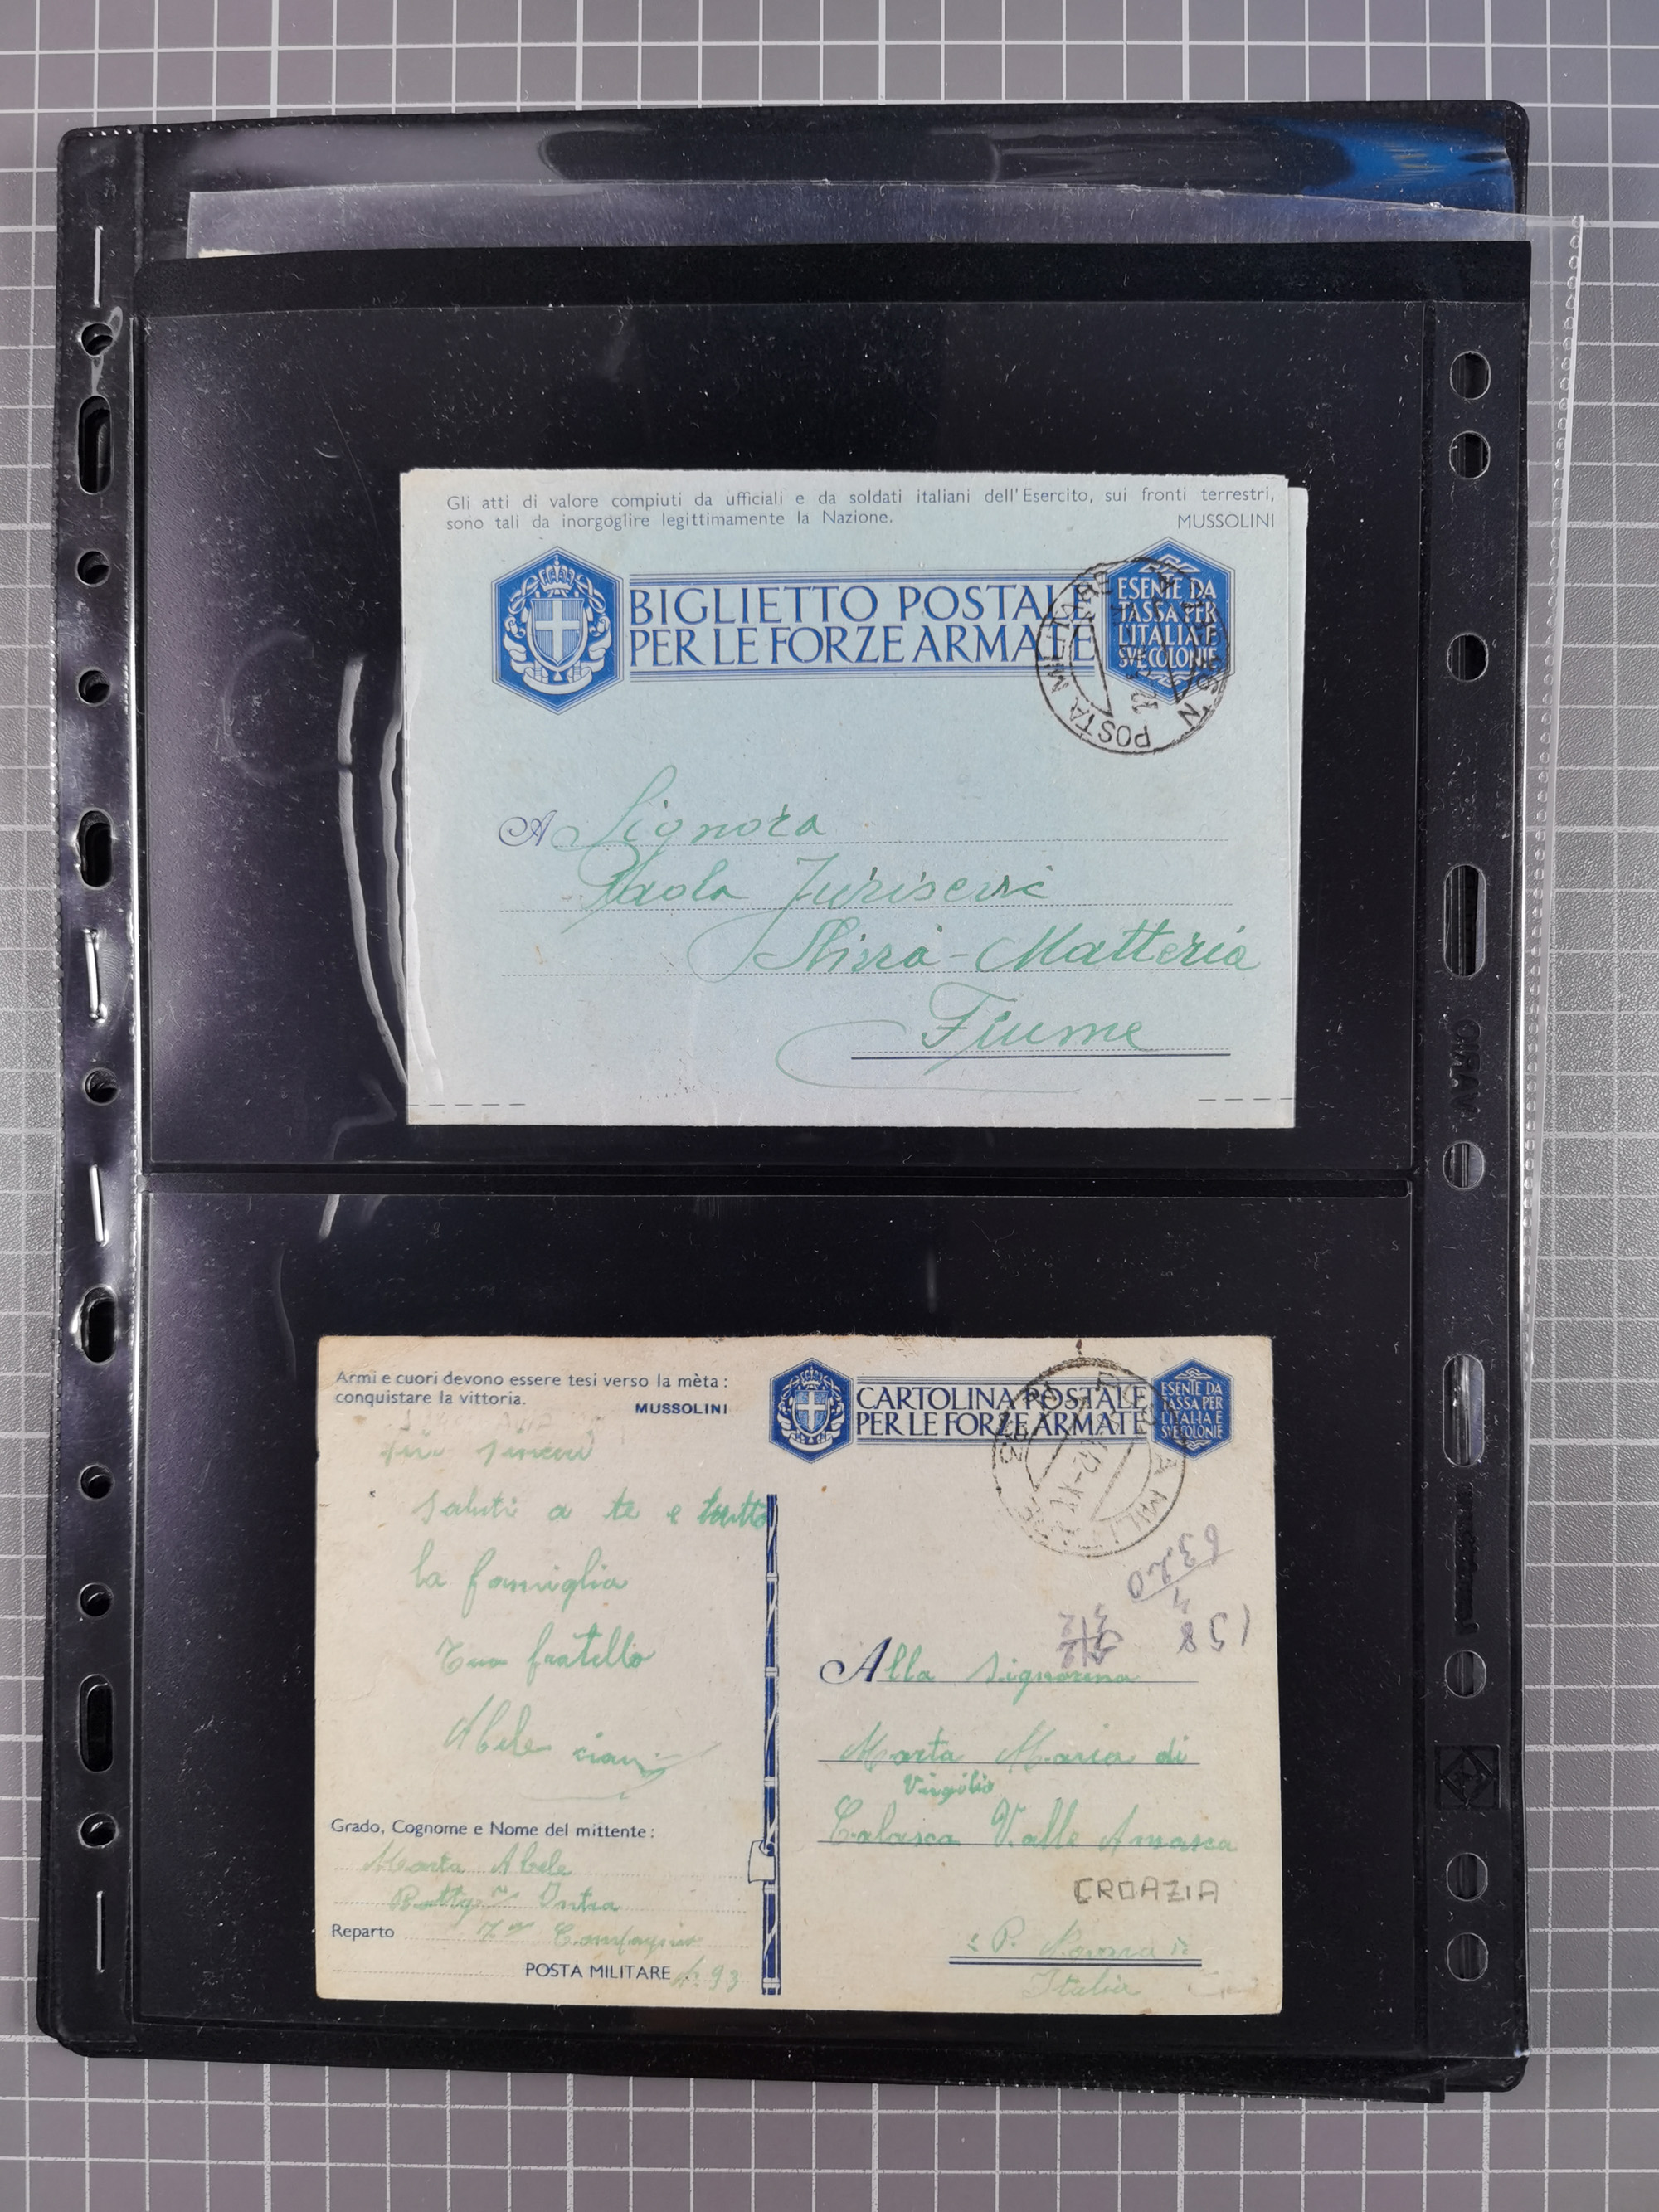 Gli atti di valore compiuti da ufficiali e da soldati italiani dell'Esercito, sui fronti terrestri,
sono tali da inorgoglire legittimamente la Nazione. MUSSOLINI
BIGLIETTO POSTALE
PER LE FORZE ARMATE
ESENTE DA
TASSA PER
L'ITALIA E
SVE COLONIE
POSTA MILITARE N.
A Signora
Paola
Matteria
Fiume
Armi e cuori devono essere tesi verso la mèta:
conquistare la vittoria.
MUSSOLINI
CARTOLINA POSTALE
PER LE FORZE ARMATE
ESENTE DA
TASSA PER
L'ITALIA E
SVE COLONIE
POSTA MILITARE
saluti a te e tutta
la famiglia
Tuo fratello
Abele ciau
6320
4
158
Alla Signorina
Marta Maria di
Virgilio
Calasca Valle Anzasca
CROAZIA
P. Novara
Italia
Grado, Cognome e Nome del mittente:
Marta Abele
Battgne Intra
Reparto 7a Compagnia
POSTA MILITARE N. 93